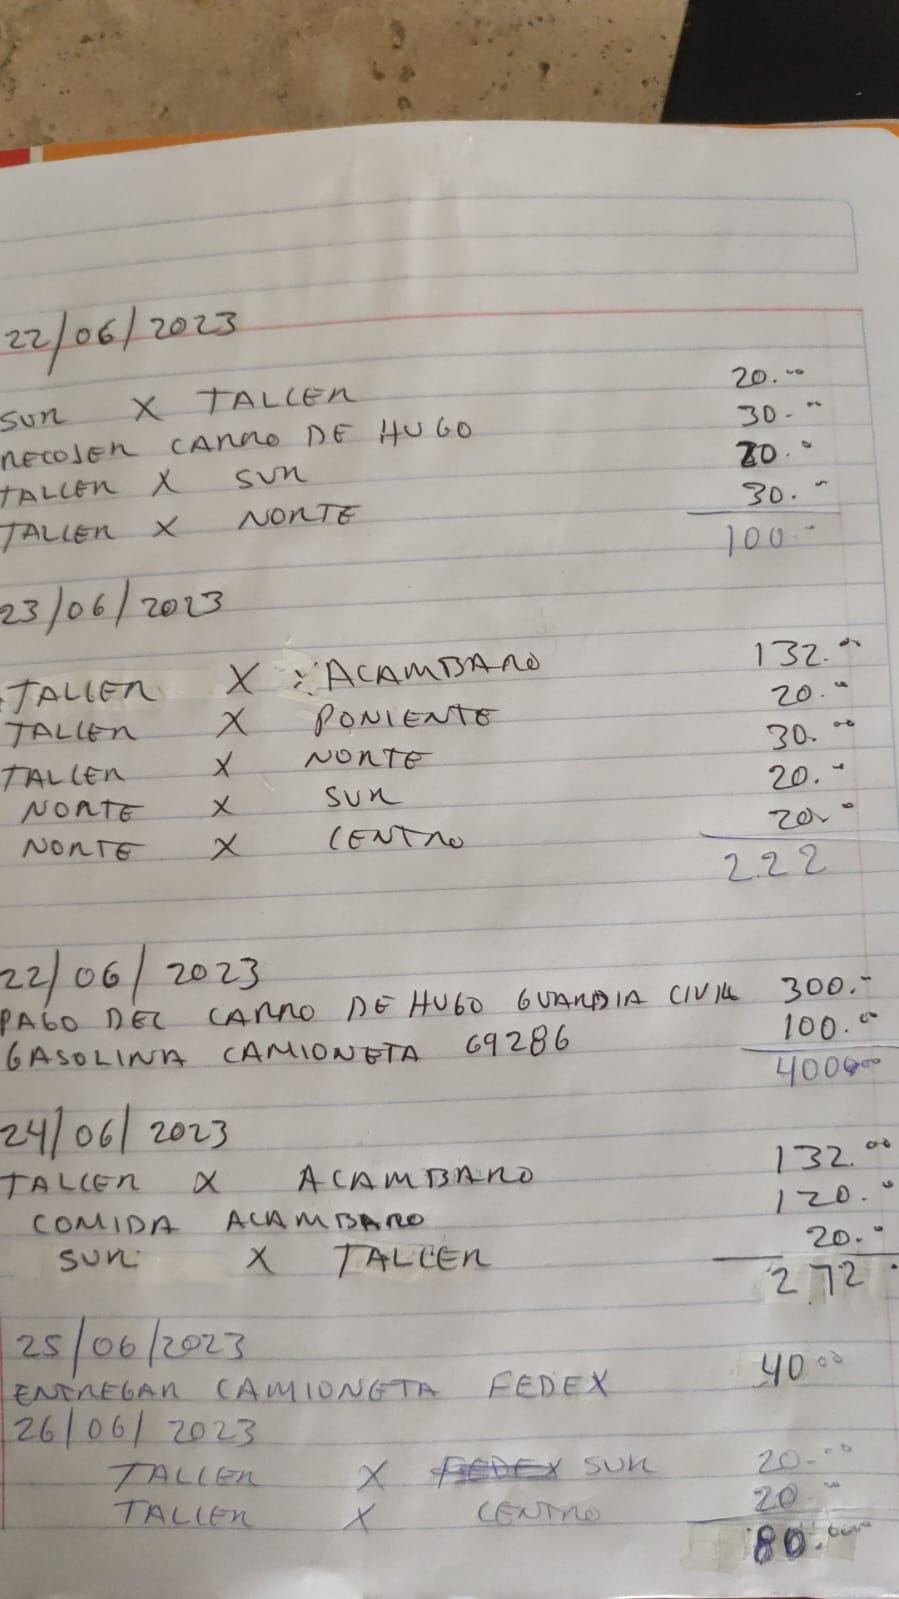 22/06/2023
SUR X TALLER 20.00
RECOJER CARRO DE HUGO 30.00
TALLER X SUR 20.0
TALLER X NORTE 30.00
100.-
23/06/2023
TALLER X ACAMBARO 132.00
TALLER X PONIENTE 20.00
TALLER X NORTE 30.00
NORTE X SUR 20.-
NORTE X CENTRO 20.0
222
22/06/2023
PAGO DEL CARRO DE HUGO GUARDIA CIVIL 300.-
GASOLINA CAMIONETA 69286 100.00
400.00
24/06/2023
TALLER X ACAMBARO 132.00
COMIDA ACAMBARO 120.0
SUR X TALLER 20.0
272.
25/06/2023
ENTREGAR CAMIONETA FEDEX 40.00
26/06/2023
TALLER X FEDEX SUR 20.00
TALLER X CENTRO 20.00
80.00